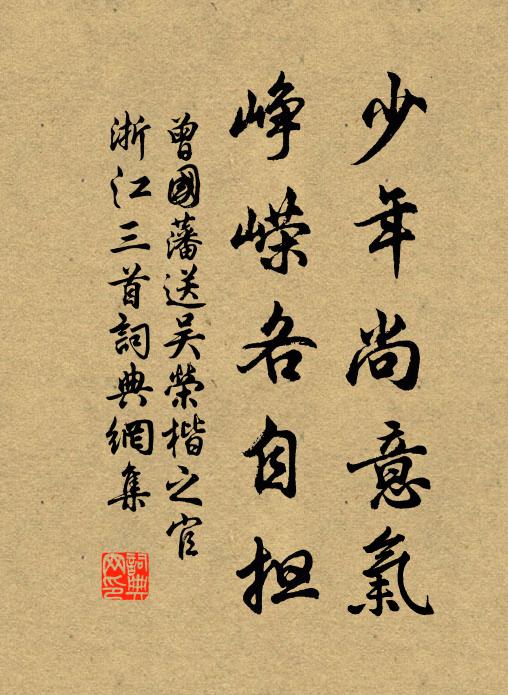 少年尚意氣
崢嶸各自担
曾國藩送吴榮楷之官
浙江三首詞典網集
詞典
网印